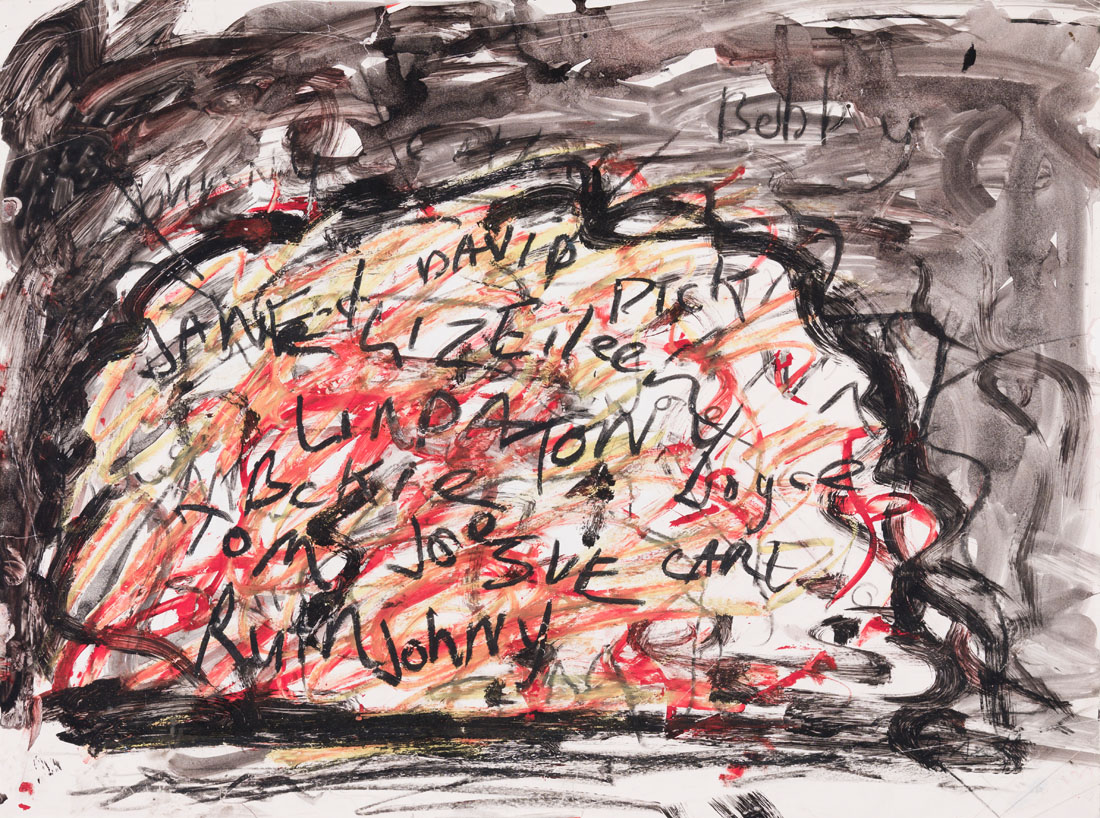 Bobby
DAVID
JANE LIZ Eileen DICK
LINDA TONY
BCKIE Joyce
TOM JOE SUE CARE
RUTH Johny